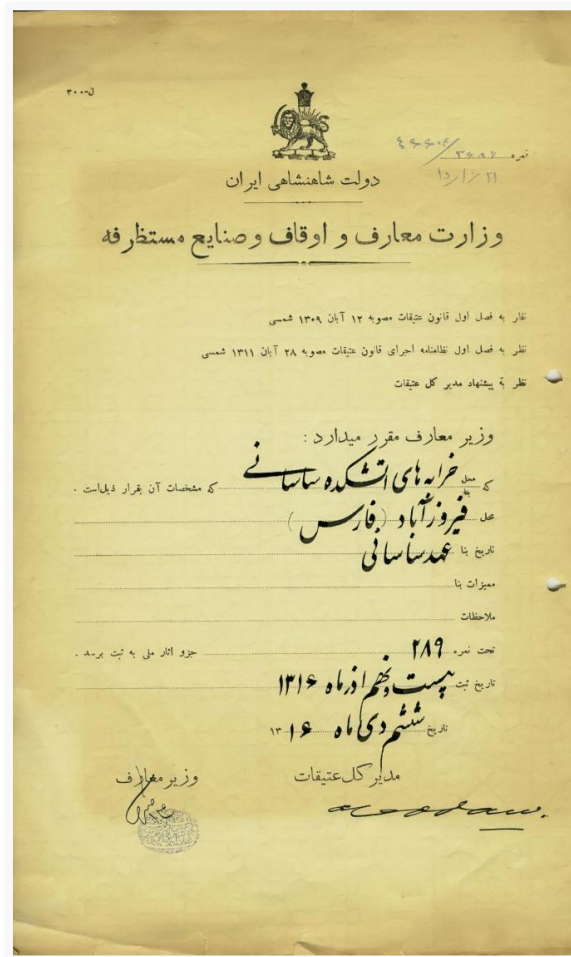 ل-۳۰۰
نمره
دولت شاهنشاهی ایران
وزارت معارف و اوقاف و صنایع مستظرفه
نظر به فصل اول قانون عتیقات مصوبه ۱۲ آبان ۱۳۰۹ شمسی
نظر به فصل اول نظامنامه اجرای قانون عتیقات مصوبه ۲۸ آبان ۱۳۱۱ شمسی
نظر به پیشنهاد مدیر کل عتیقات
وزیر معارف مقرر میدارد :
که محل بنا خرابه های اتشکده ساسانی که مشخصات آن بقرار ذیل است .
محل فیروزآباد (فارس)
تاریخ بنا عهد ساسانی
ممیزات بنا
ملاحظات
تحت نمره ۲۸۹ جزو آثار ملی به ثبت برسد .
تاریخ ثبت بیست و نهم اذر ماه ۱۳۱۶
تاریخ ششم دی ماه ۱۳۱۶
مدیر کل عتیقات وزیر معارف